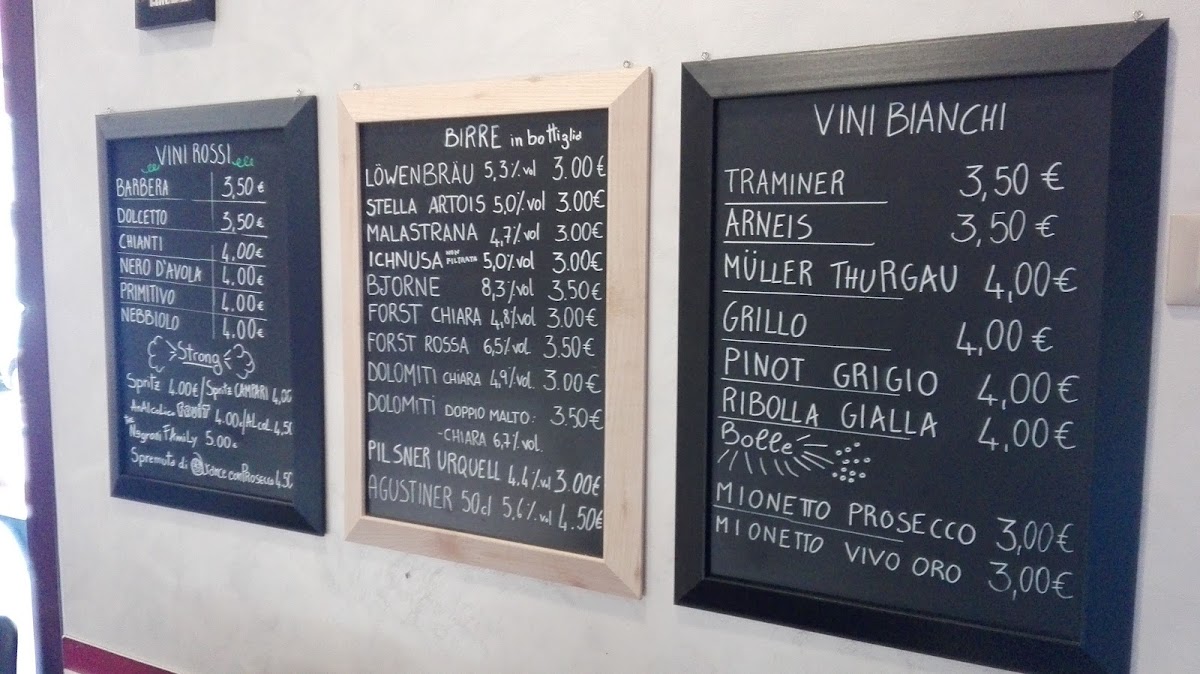 VINI ROSSI
BARBERA 3,50 €
DOLCETTO 3,50 €
CHIANTI 4,00 €
NERO D'AVOLA 4,00 €
PRIMITIVO 4.00 €
NEBBIOLO 4.00 €
Strong
Spritz 4.00 € / Spritz CAMPARI 4,00
AnAlcolico 4.00 / Alcol. 4,50
Negroni FAmily 5.00 €
Spremuta di Arance con Prosecco 4.50
BIRRE in bottiglia
LÖWENBRÄU 5,3%vol 3.00€
STELLA ARTOIS 5,0%vol 3.00€
MALASTRANA 4,7%vol 3.00€
ICHNUSA NON FILTRATA 5,0%vol 3.00€
BJORNE 8,3%vol 3.50€
FORST CHIARA 4,8%vol 3.00€
FORST ROSSA 6,5%vol. 3.50€
DOLOMITI CHIARA 4,9%vol. 3.00€
DOLOMITI DOPPIO MALTO: 3.50€
-CHIARA 6,7%vol.
PILSNER URQUELL 4,4%vol 3.00€
AGUSTINER 50cl 5,6%vol 4.50€
VINI BIANCHI
TRAMINER 3,50 €
ARNEIS 3,50 €
MÜLLER THURGAU 4,00€
GRILLO 4,00€
PINOT GRIGIO 4,00€
RIBOLLA GIALLA 4,00€
Bolle
MIONETTO PROSECCO 3,00€
MIONETTO VIVO ORO 3,00€